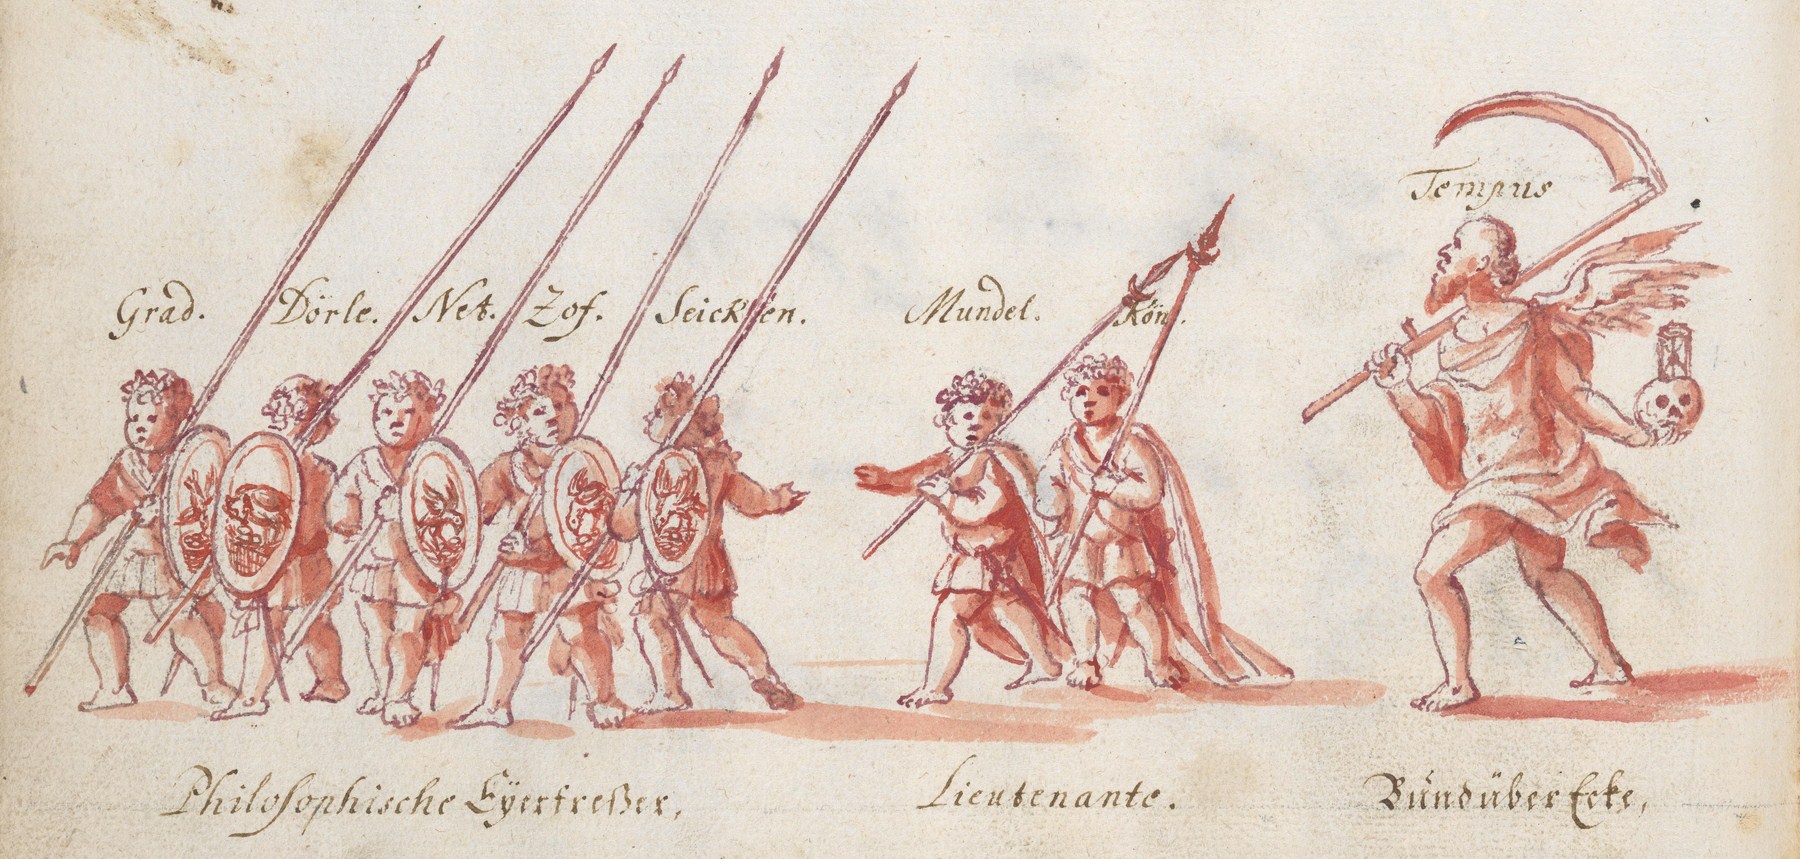 Tempus
Grad. Dörle. Net. Zof. Seicksen. Mundel. Kön.
Philosophische Eÿerfreßer,
Lieutenante.
Bündüber Ecke,